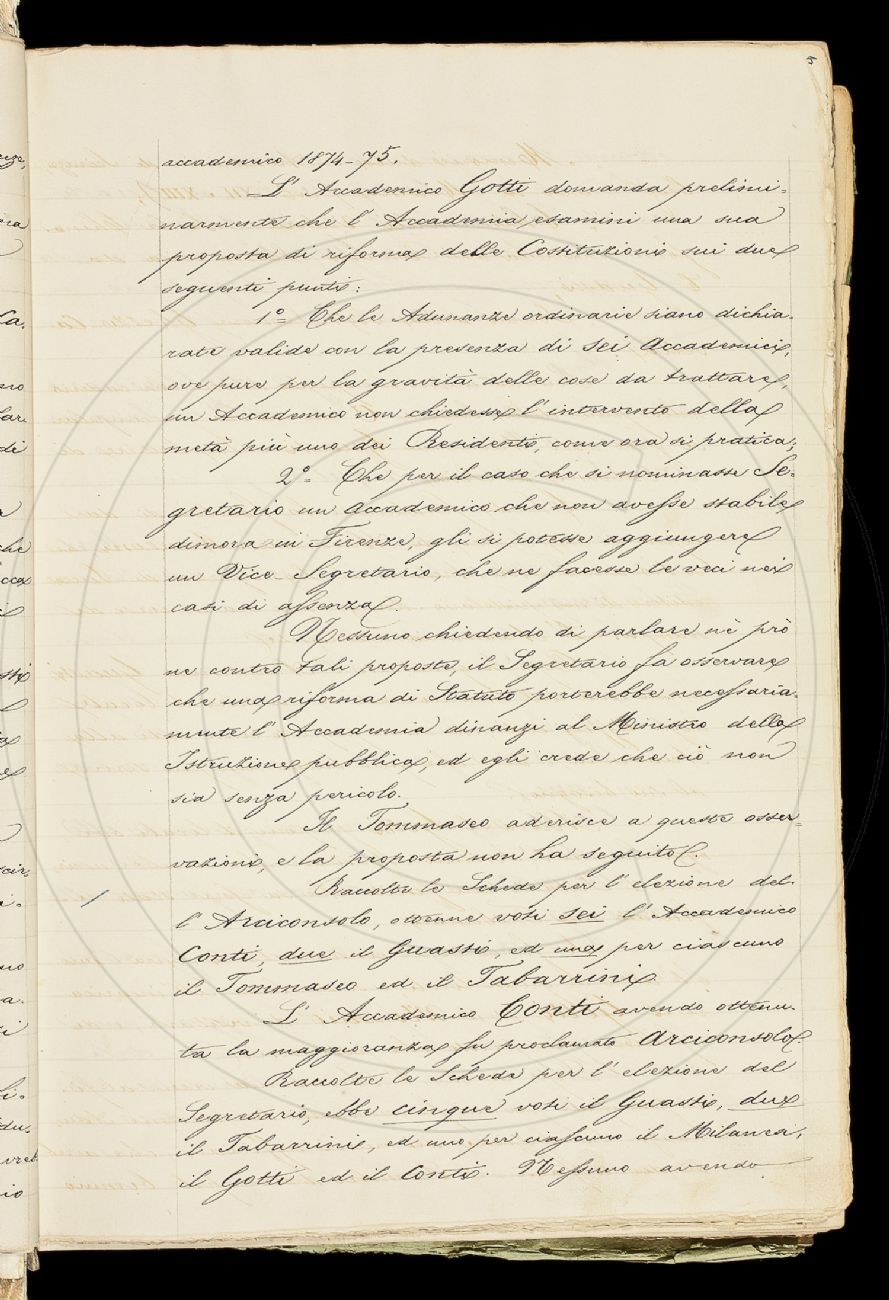 5
accademico 1874-75.
L'Accademico Gotti domanda prelimi-
narmente che l'Accademia esamini una sua
proposta di riforma delle Costituzioni sui due
seguenti punti:
1º= Che le Adunanze ordinarie siano dichia-
rate valide con la presenza di sei Accademici,
ove pure per la gravità delle cose da trattare,
un Accademico non chiedesse l'intervento della
metà più uno dei Residenti, come ora si pratica;
2º= Che per il caso che si nominasse Se-
gretario un Accademico che non avesse stabile
dimora in Firenze, gli si potesse aggiungere
un Vice Segretario, che ne facesse le veci nei
casi di assenza.
Nessuno chiedendo di parlare nè prò
ne contro tali proposte, il Segretario fa osservare
che una riforma di Statuto porterebbe necessaria-
mente l'Accademia dinanzi al Ministro della
Istruzione pubblica, ed egli crede che ciò non
sia senza pericolo.
Il Tommaseo aderisce a queste osser-
vazioni, e la proposta non ha seguito.
Raccolte le Schede per l'elezione del-
l'Arciconsolo, ottenne voti sei l'Accademico
Conti, due il Guasti, ed uno per ciascuno
il Tommaseo ed il Tabarrini.
L'Accademico Conti avendo ottenu-
ta la maggioranza fu proclamato Arciconsolo.
Raccolte le Schede per l'elezione del
Segretario, ebbe cinque voti il Guasti, due
il Tabarrini, ed uno per ciascuno il Milanesi,
il Gotti ed il Conti. Nessuno avendo